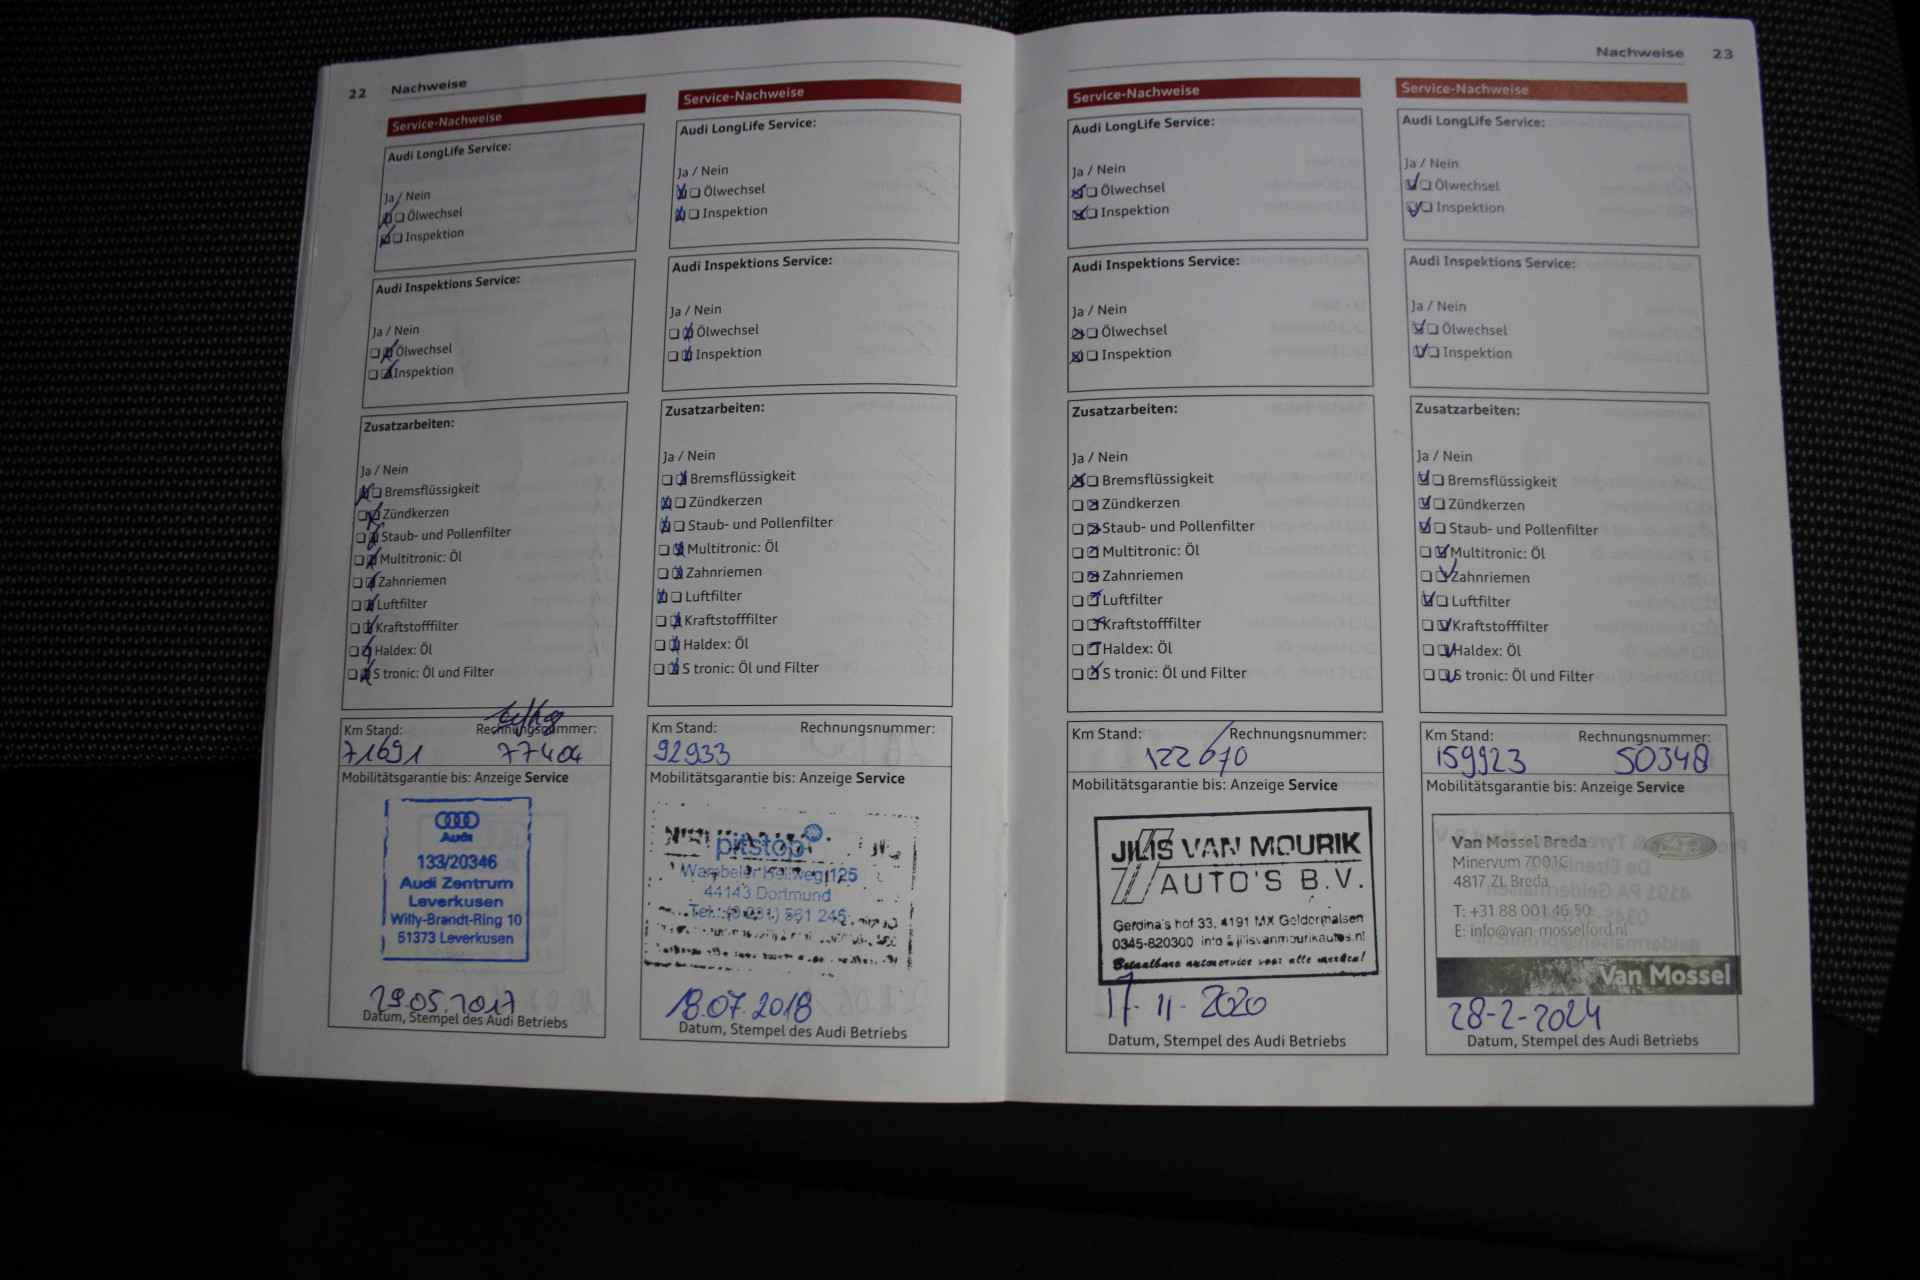 22 Nachweise
Service-Nachweise
Audi LongLife Service:
Ja / Nein
Ölwechsel
Inspektion
Audi Inspektions Service:
Ja / Nein
Ölwechsel
Inspektion
Zusatzarbeiten:
Ja / Nein
Bremsflüssigkeit
Zündkerzen
Staub- und Pollenfilter
Multitronic: Öl
Zahnriemen
Luftfilter
Kraftstofffilter
Haldex: Öl
S tronic: Öl und Filter
Km Stand: Rechnungsnummer:
71691 77404
Mobilitätsgarantie bis: Anzeige Service
Audi
133/20346
Audi Zentrum
Leverkusen
Willy-Brandt-Ring 10
51373 Leverkusen
29.05.2017
Datum, Stempel des Audi Betriebs
Service-Nachweise
Audi LongLife Service:
Ja / Nein
Ölwechsel
Inspektion
Audi Inspektions Service:
Ja / Nein
Ölwechsel
Inspektion
Zusatzarbeiten:
Ja / Nein
Bremsflüssigkeit
Zündkerzen
Staub- und Pollenfilter
Multitronic: Öl
Zahnriemen
Luftfilter
Kraftstofffilter
Haldex: Öl
S tronic: Öl und Filter
Km Stand: Rechnungsnummer:
92933
Mobilitätsgarantie bis: Anzeige Service
pitstop
Wambeler Hellweg 125
44143 Dortmund
18.07.2018
Datum, Stempel des Audi Betriebs
Nachweise 23
Service-Nachweise
Audi LongLife Service:
Ja / Nein
Ölwechsel
Inspektion
Audi Inspektions Service:
Ja / Nein
Ölwechsel
Inspektion
Zusatzarbeiten:
Ja / Nein
Bremsflüssigkeit
Zündkerzen
Staub- und Pollenfilter
Multitronic: Öl
Zahnriemen
Luftfilter
Kraftstofffilter
Haldex: Öl
S tronic: Öl und Filter
Km Stand: Rechnungsnummer:
122670
Mobilitätsgarantie bis: Anzeige Service
JILIS VAN MOURIK
AUTO'S B.V.
Gerdina's hof 33, 4191 MX Geldermalsen
0345-820300 info@jilisvanmourikautos.nl
Betaalbare autoservice voor alle merken!
17-11-2020
Datum, Stempel des Audi Betriebs
Service-Nachweise
Audi LongLife Service:
Ja / Nein
Ölwechsel
Inspektion
Audi Inspektions Service:
Ja / Nein
Ölwechsel
Inspektion
Zusatzarbeiten:
Ja / Nein
Bremsflüssigkeit
Zündkerzen
Staub- und Pollenfilter
Multitronic: Öl
Zahnriemen
Luftfilter
Kraftstofffilter
Haldex: Öl
S tronic: Öl und Filter
Km Stand: Rechnungsnummer:
159923 50348
Mobilitätsgarantie bis: Anzeige Service
Van Mossel Breda
Minervum 7001C
4817 ZL Breda
T: +31 88 001 46 50
E: info@van-mosselford.nl
Van Mossel
28-2-2024
Datum, Stempel des Audi Betriebs